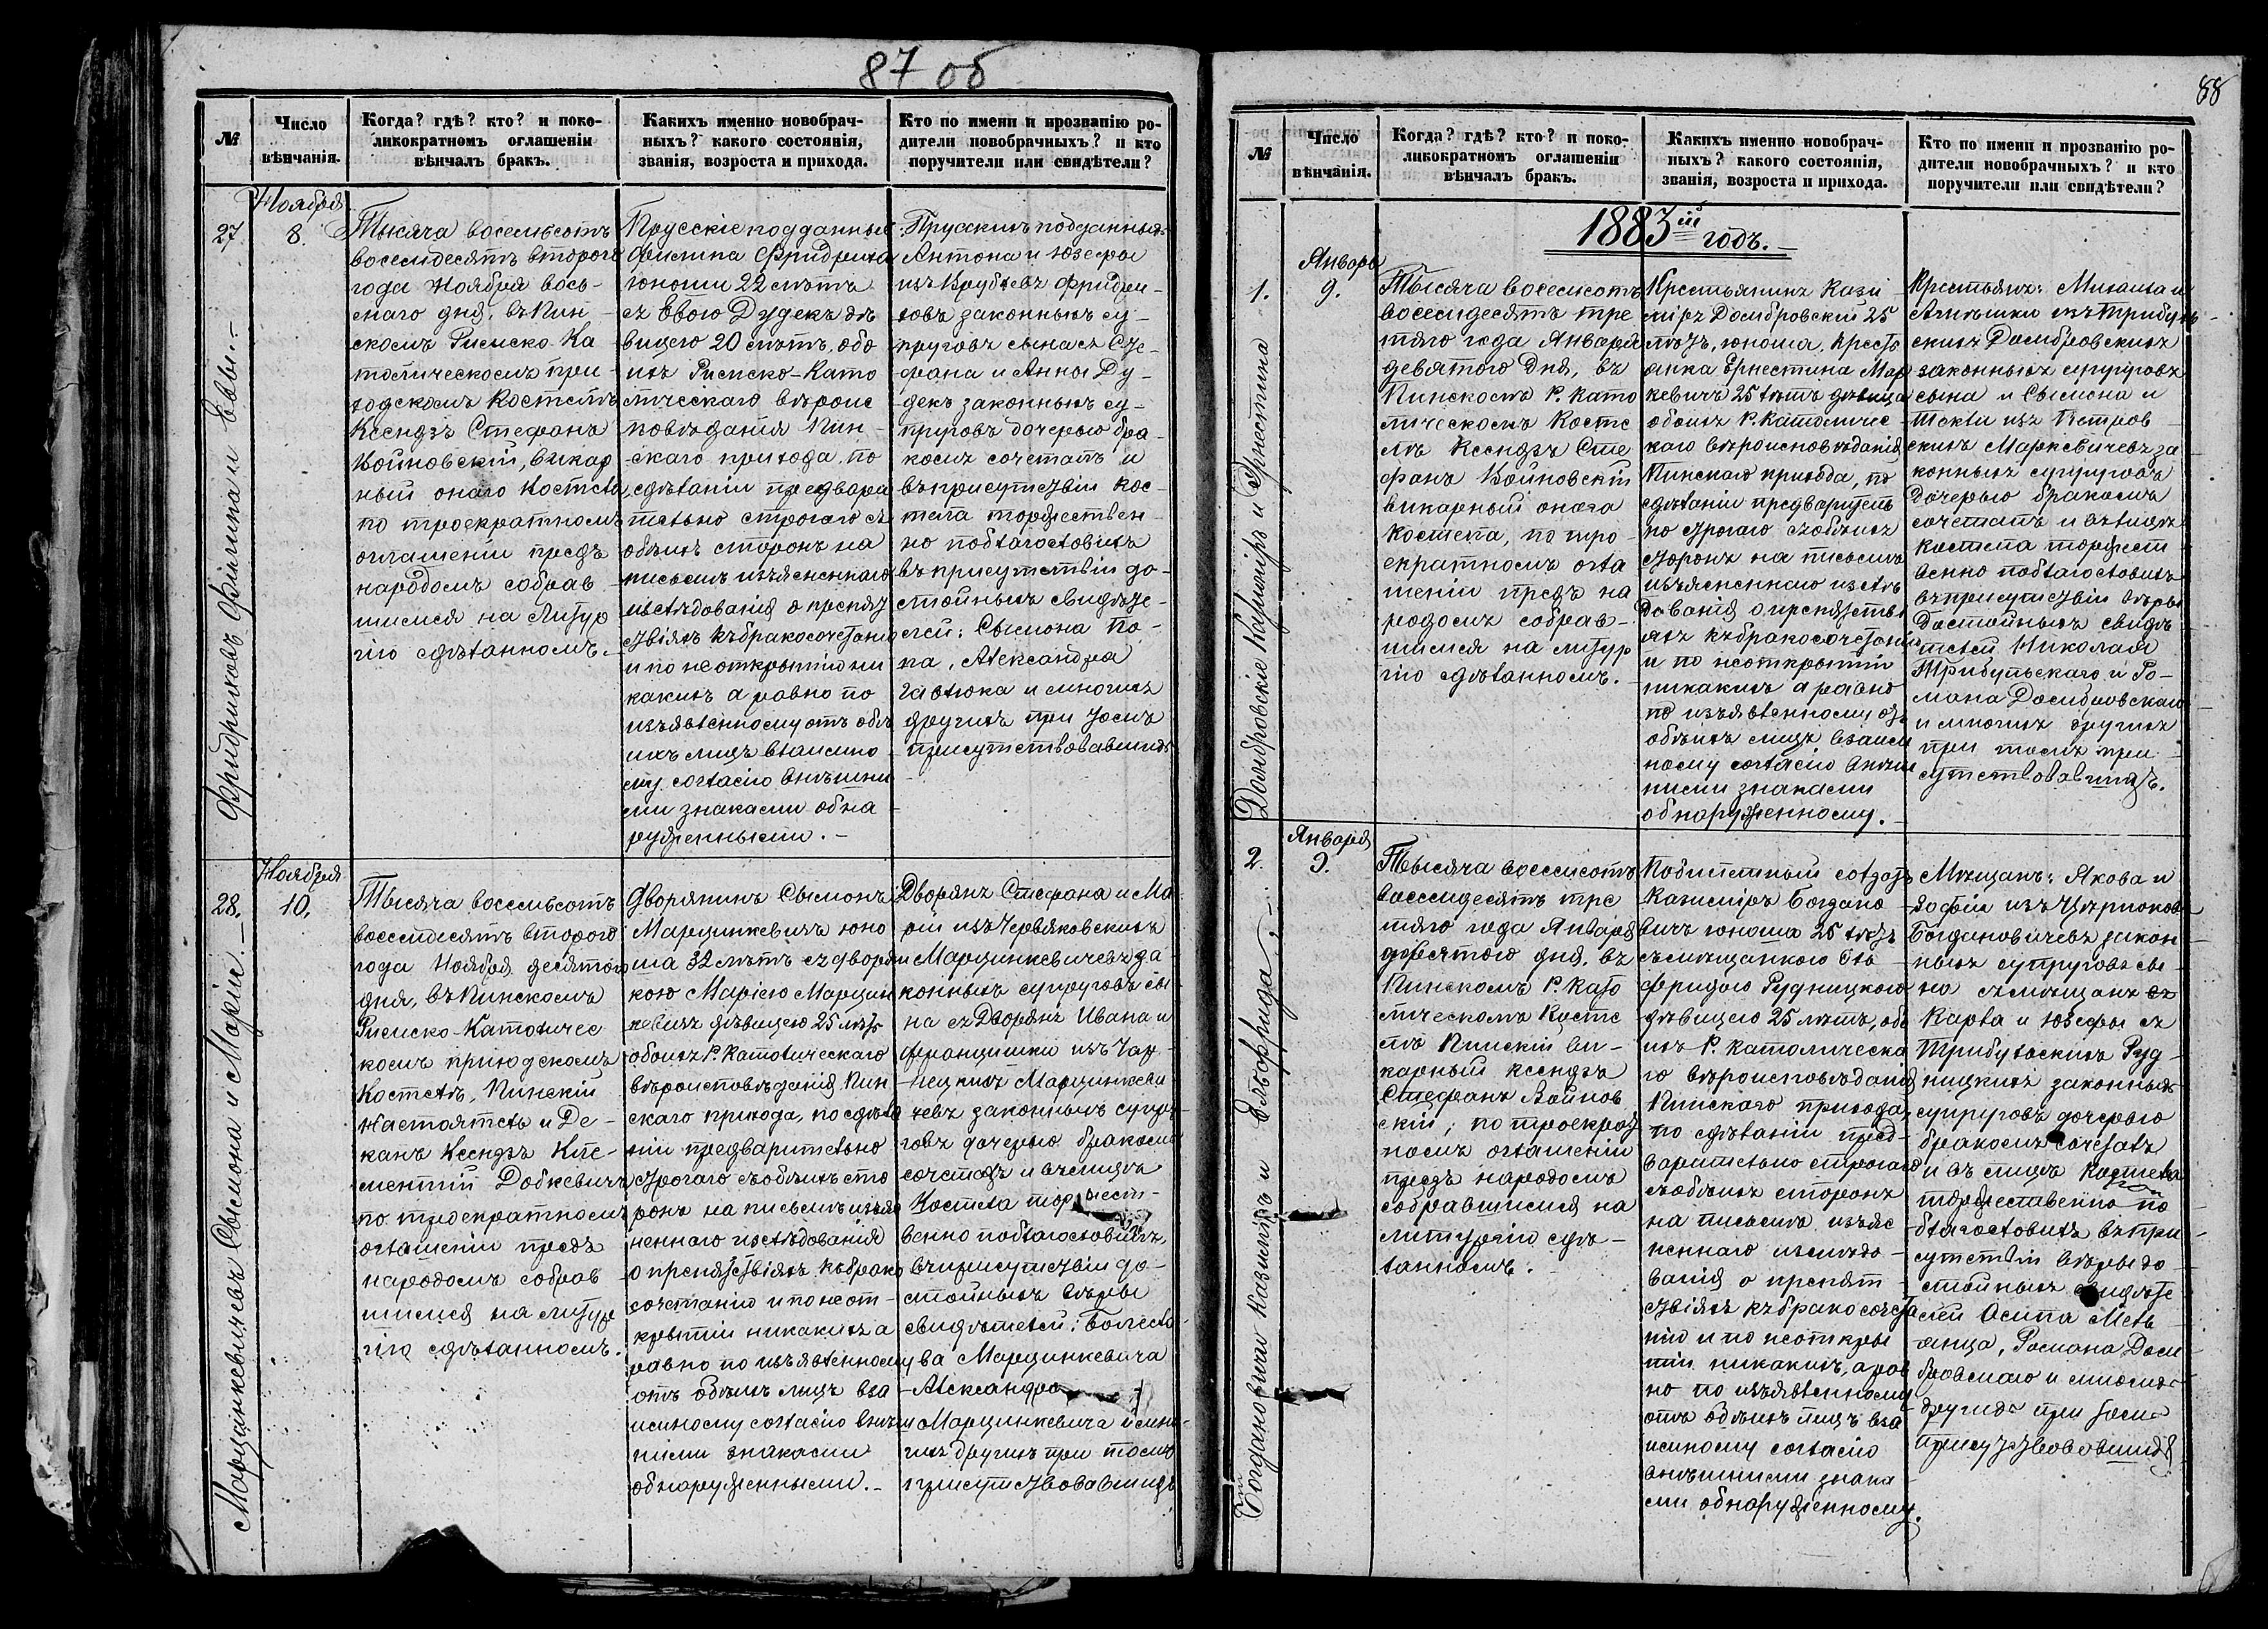 87 об
№
Число
вѣнчанія.
Когда? гдѣ? кто? и поко-
ликократномъ оглашеніи
вѣнчалъ бракъ.
Какихъ именно новобрач-
ныхъ? какого состоянія,
званія, возроста и прихода.
Кто по имени и прозванію ро-
дители новобрачныхъ? и кто
поручители или свидѣтели?
27
Фридриховъ Филипа и Еввы.-
Ноября
8.
Тысяча восемьсотъ
восемдесятъ второго
года Ноября вось-
маго дня, въ Пин-
скомъ Римско Ка
толическомъ при-
ходскомъ Костелѣ
Ксендзъ Стефанъ
Войновскій, викар
ный онаго Костела
по троекратномъ
оглашеніи предъ
народомъ собрав
шимся на Литур
гію сдѣланномъ.
Прусскіе подданные
Филипа Фридриха
юноши 22 лѣтъ
съ Еввою Дудекъ дѣ
вицею 20 лѣтъ, обо
ихъ Римско-Като
лическаго вѣроис
повѣданія Пин-
скаго прихода, по
сдѣланіи предвари
тельно строгаго съ
обѣихъ сторонъ на
письмѣ изъясненнаго
изслѣдованія о препят
ствіяхъ къ бракосочетанію
и по неоткрытію ни
какихъ а равно по
изъявленному отъ обѣ
ихъ лицъ взаимно
му согласію внѣшни
ми знаками обна
руженными.-
Прусскихъ подданныхъ
Антона и Юзефы
изъ Фридри-
ховъ законныхъ су-
пруговъ сына съ Сте-
фана и Анны Ду-
декъ законныхъ су-
пруговъ дочерью бра-
комъ сочеталъ и
въ присутствіи Кос-
тела торжествен-
но поблагословилъ
въ присутствіи до-
стойныхъ свидѣте-
лей: Сымона По-
па, Александра
Гавлюка и многихъ
другихъ при томъ
присутствовавшихъ
28.
Марцинкевичевъ Сымона и Маріи.-
Ноября
10.
Тысяча восемьсотъ
восемдесятъ второго
года Ноября десятого
дня, въ Пинскомъ
Римско-Католичес
комъ приходскомъ
Костелѣ, Пинскій
Настоятель и Де-
канъ Ксендзъ Кле-
ментій Добкевичъ
по троекратномъ
оглашеніи предъ
народомъ собрав
шимся на литур
гію сдѣланномъ.
Дворянинъ Сымонъ
Марцинкевичъ юно
ша 32 лѣтъ съ дворян
кою Маріею Марцин
кевичъ дѣвицею 25 лѣтъ
обоихъ Р. Католическаго
вѣроисповѣданія Пин
скаго прихода, по сдѣла
ніи предварительно
строгаго съ обѣихъ сто
ронъ на письмѣ изъяс
неннаго изслѣдованія
о препятствіяхъ къ брако
сочетанію и по неот-
крытіи никакихъ а
равно по изъявленному
отъ обѣихъ лицъ вза
имному согласію внѣш
ними знаками
обнаруженными.-
Дворянъ Стефана и Ма
ріи изъ Червяковскихъ
Марцинкевичевъ за-
конныхъ супруговъ сы-
на съ Дворянъ Ивана и
Францишки изъ Чар-
нецкихъ Марцинкеви
чевъ законныхъ супру-
говъ дочерью бракомъ
сочеталъ и въ лицѣ
Костела торжест-
венно поблагословилъ,
въ присутствіи до-
стойныхъ вѣры
свидѣтелей: Болесла
ва Марцинкевича
Александра
Марцинкевича и мно-
гихъ другихъ при томъ
присутствовавшихъ
88
№
Число
вѣнчанія.
Когда? гдѣ? кто? и поко-
ликократномъ оглашеніи
вѣнчалъ бракъ.
Какихъ именно новобрач-
ныхъ? какого состоянія,
званія, возроста и прихода.
Кто по имени и прозванію ро-
дители новобрачныхъ? и кто
поручители или свидѣтели?
1883 ій годъ.-
1.
Домбровскіе Казиміръ и Ернестина
Январь
9.
Тысяча восемсотъ
восемдесятъ тре
тяго года Января
девятого дня, въ
Пинскомъ Р. Като
лическомъ Косте
лѣ Ксендзъ Сте
фанъ Войновскій
викарный онаго
Костела, по тро-
екратномъ огла
шеніи предъ на
родомъ собрав-
шимся на литур
гію сдѣланномъ.-
Крестьянинъ Кази
міръ Домбровскій 25
лѣтъ, юноша, Кресть
янка Ернестина Мар
кевичъ 25 лѣтъ дѣвица
обоихъ Р. Католичес
каго вѣроисповѣданія
Пинскаго прихода, по
сдѣланіи предваритель
но строгаго съ обѣихъ
сторонъ на письмѣ
изъясненнаго изслѣ
дованія о препятстві
яхъ къ бракосочетанію
и по неоткрытіи
никакихъ а равно
по изъявленному отъ
обѣихъ лицъ взаим
ному согласію внѣш
ними знаками
обнаруженному.
Крестьянъ: Михаила и
Агнѣшки изъ Трибуль-
скихъ Домбровскихъ
законныхъ супруговъ
сына и Сымона и
Теклі изъ Петров
скихъ Маркевичевъ за
конныхъ супруговъ
дочерью бракомъ
сочеталъ и въ лицѣ
Костела торжест
венно поблагословилъ
въ присутствіи вѣры
достойныхъ свидѣ
телей Николая
Трибульскаго и Ро-
мана Домбровскаго
и многихъ другихъ
при томъ при
сутствовавшихъ.
2.
Богдановичи Казиміръ и Ельфрида.-
Января
9.
Тысяча восемсотъ
восемдесятъ тре
тяго года Января
девятого дня, въ
Пинскомъ Р. Като
лическомъ Косте
лѣ Пинскій ви-
карный ксендзъ
Стефанъ Войнов
скій, по троекрат
номъ оглашеніи
предъ народомъ
собравшимся на
литургію сдѣ-
ланномъ.
солдатъ
Казиміръ Богдано
вичъ юноша 26 лѣтъ
съ мѣщанкою Ель
фридою Рудницкою
дѣвицею 25 лѣтъ, обо
ихъ Р. Католическа
го вѣроисповѣданія
Пинскаго прихода
по сдѣланіи пред-
варительно строгаго
съ обѣихъ сторонъ
на письмѣ изъяс
неннаго изслѣдо-
ванія о препят
ствіяхъ къ бракосочета
нію и по неоткры
тіи никакихъ, а рав
но по изъявленному
отъ обѣихъ лицъ вза
имному согласію
внѣшними знака
ми обнаруженному.
Мѣщанъ: Якова и
Зофіи изъ
Богдановичевъ закон
ныхъ супруговъ сы-
на съ мѣщанъ
Карла и Юзефы съ
Трибульскихъ Руд-
ницкихъ законныхъ
супруговъ дочерью
бракомъ сочеталъ
и въ лицѣ Костела
торжественно по
благословилъ въ при
сутствіи вѣры до
стойныхъ свидѣте
лей Осипа
Романа Дом
бровскаго и многихъ
другихъ при томъ
присутствовавшихъ